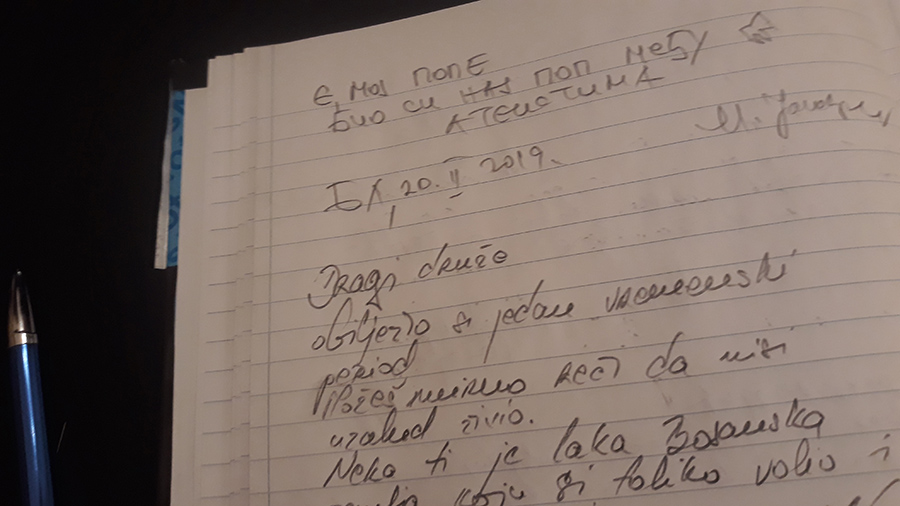 Е, МОЈ ПОПЕ
БИО СИ НАЈ ПОП МЕЂУ
АТЕИСТИМА
БЛ, 20. II 2019.
Dragi druže
obilježio si jedan vremenski
period
Možeš mirno reći da nisi
uzalud živio.
Neka ti je laka Bosanska
koju si toliko volio i